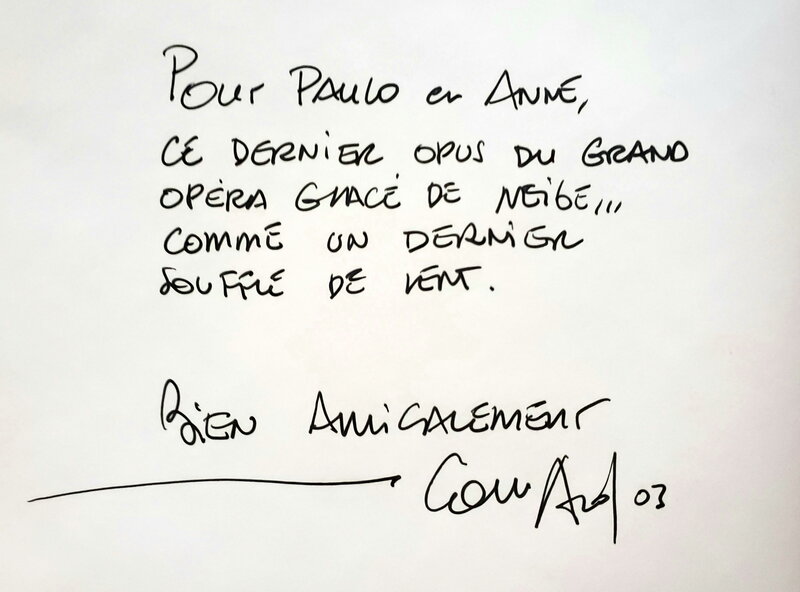 Pour Paulo en Anne,
CE DERNIER OPUS DU GRAND
OPÉRA GLACÉ DE NEIGE...
COMME UN DERNIER
SOUFFLE DE VENT.
Bien AMICALEMENT
03